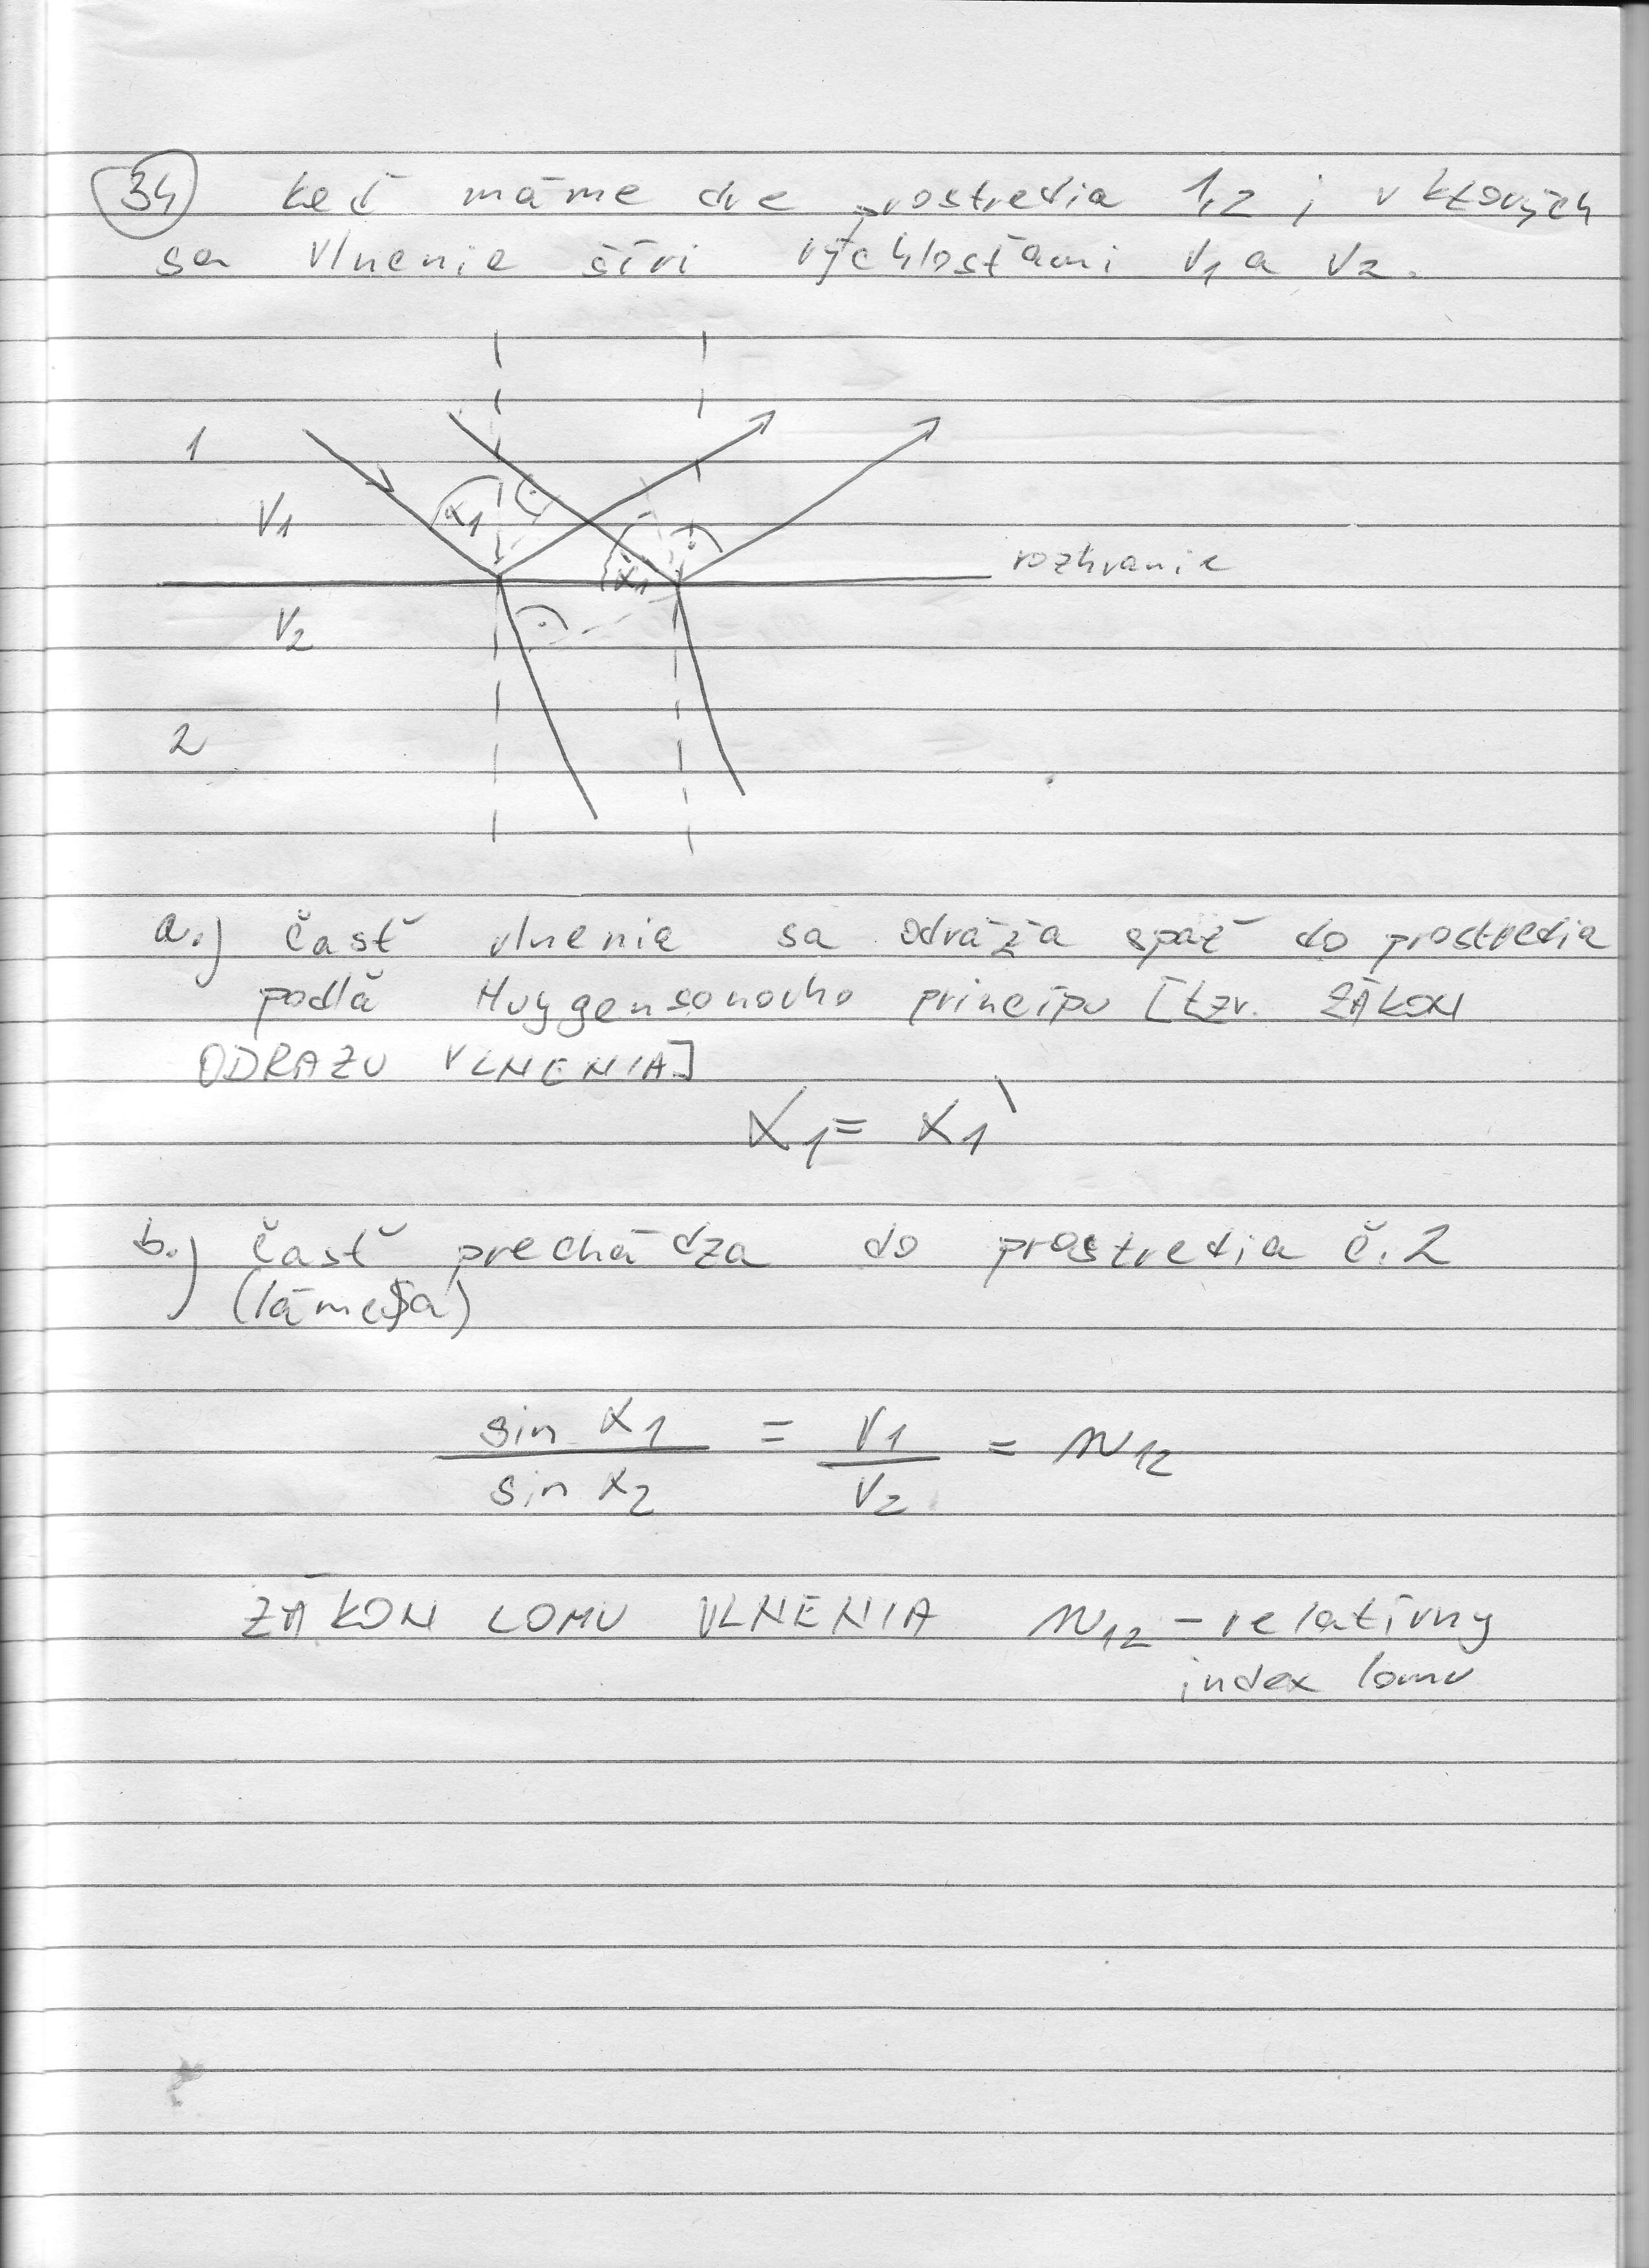 34 keď máme dve prostredia 1,2 ; v ktorých
sa vlnenie šíri rýchlosťami V1 a V2.
1
α1
V1
α1
rozhranie
V2
2
a.) časť vlnenia sa odráža späť do prostredia
podľa Huygensonovho principu [tzv. ZÁKON
ODRAZU VLNENIA]
α1 = α1`
b.) časť prechádza do prostredia č.2
(láme sa)
sin α1 / sin α2 = V1 / V2 = n12
ZÁKON LOMU VLNENIA n12 - relatívny
index lomu